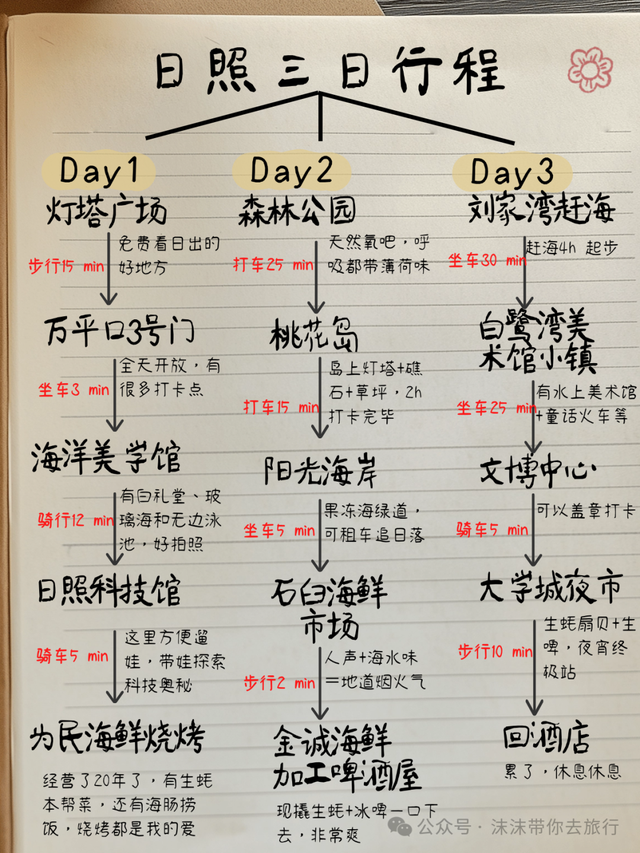 日照三日行程
Day1
灯塔广场
步行15 min
免费看日出的
好地方
万平口3号门
坐车3 min
全天开放，有
很多打卡点
海洋美学馆
骑行12 min
有白礼堂、玻
璃海和无边泳
池，好拍照
日照科技馆
骑车5 min
这里方便遛
娃，带娃探索
科技奥秘
为民海鲜烧烤
经营了20年了，有生蚝
本帮菜，还有海肠捞
饭，烧烤都是我的爱
Day2
森林公园
打车25 min
天然氧吧，呼
吸都带薄荷味
桃花岛
打车15 min
岛上灯塔+礁
石+草坪，2h
打卡完毕
阳光海岸
坐车5 min
果冻海绿道，
可租车追日落
石臼海鲜
市场
步行2 min
人声+海水味
=地道烟火气
金诚海鲜
加工啤酒屋
现撬生蚝+冰啤一口下
去，非常爽
Day3
刘家湾赶海
坐车30 min
赶海4h 起步
白鹭湾美
术馆小镇
坐车25 min
有水上美术馆
+童话火车等
文博中心
骑车5 min
可以盖章打卡
大学城夜市
步行10 min
生蚝扇贝+生
啤，夜宵终
极站
回酒店
累了，休息休息
公众号·沫沫带你去旅行